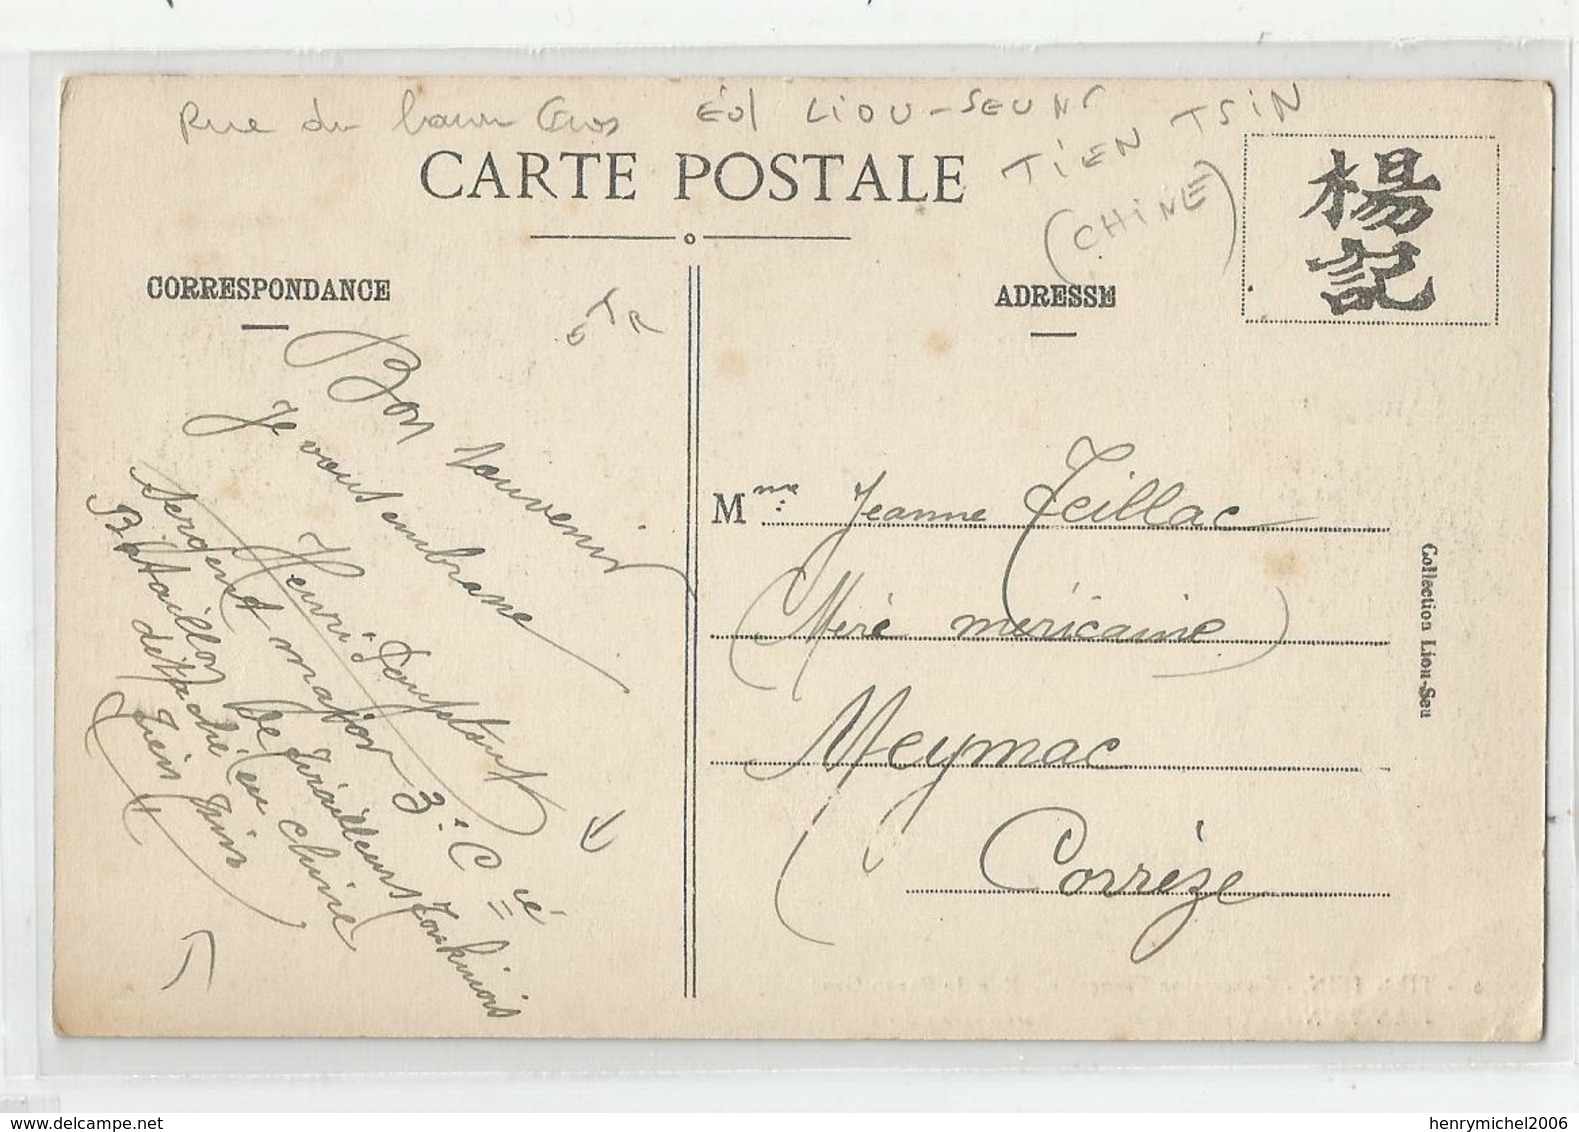 Rue du baron Gros Éd LIOU-SEUNG
TIEN TSIN
(CHINE)
CARTE POSTALE
楊
記
CORRESPONDANCE
ADRESSE
TR
Bon souvenir
Je vous embrasse
Henri
Sergent major 3e Cie
Bataillon de Tirailleurs Tonkinois
détaché en Chine
Tien Tsin
Mme Jeanne Teillac
Meymac
Corrèze
Collection Liou-Seu
henrymichel2006